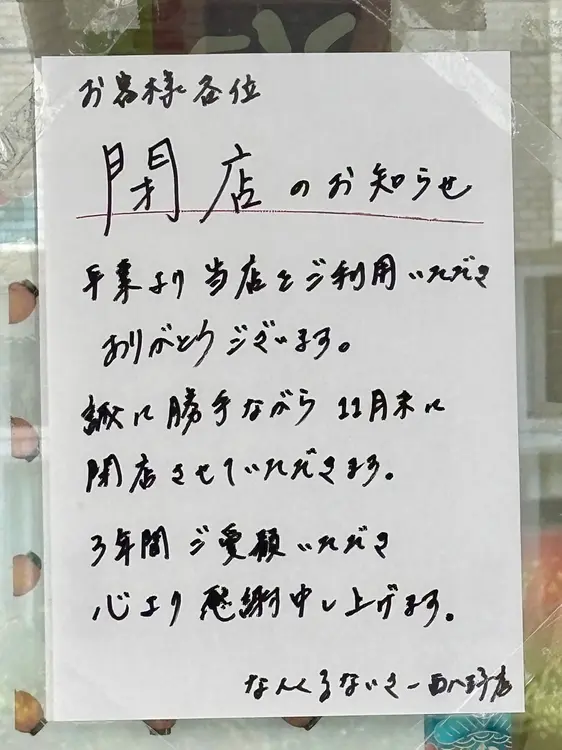 お客様各位
閉店のお知らせ
平素より当店をご利用いただき
ありがとうございます。
誠に勝手ながら 11月末に
閉店させていただきます。
3年間ご愛顧いただき
心より感謝申し上げます。
なんくるないさー